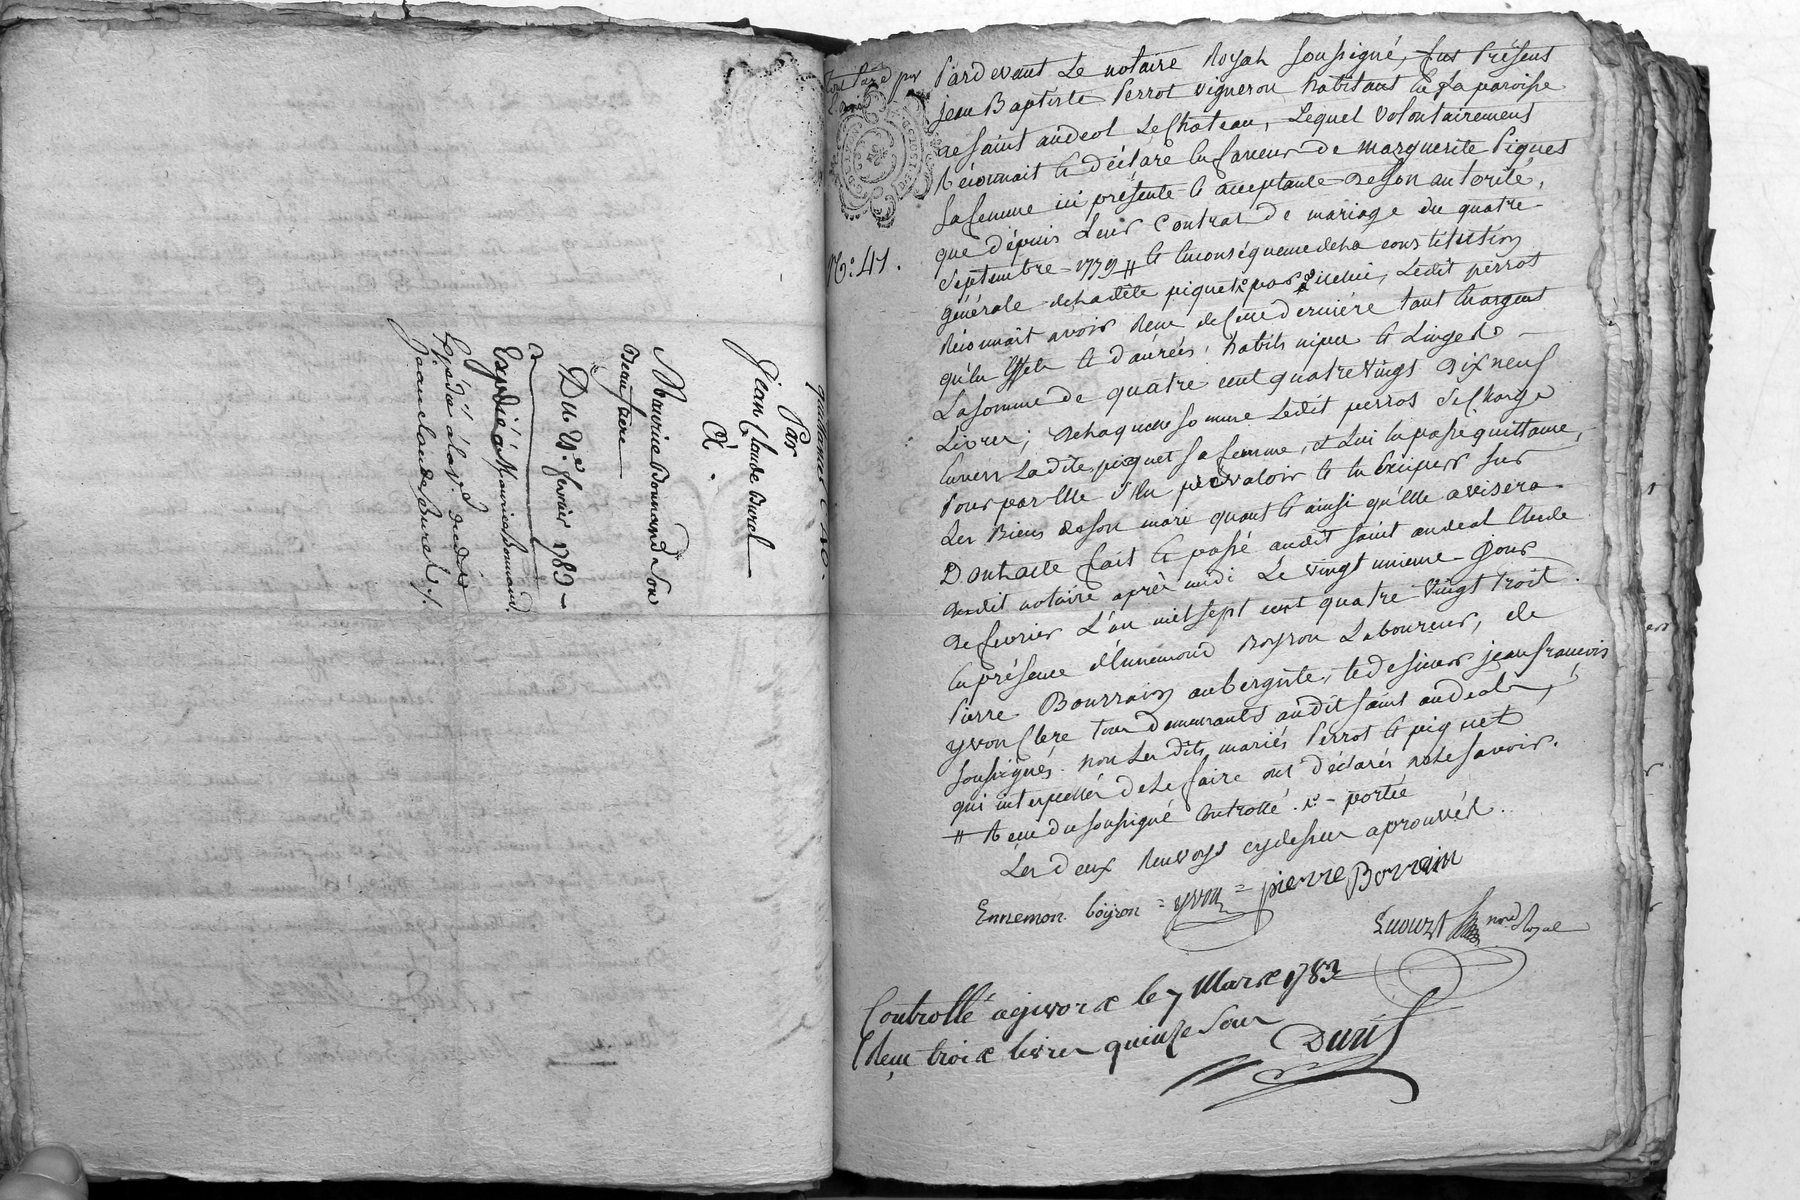 quittance
Par
Jean Claude Burel
À.
Maurice Bonnand son
Beaufrere
Du 2e. fevrier 1783
Expedié à Maurice Bonnand.
Expedié a la req.
Jean claude Burel
N.o 41.
Pardevant Le notaire Royal soussigné, fut Présent
jean Baptiste Perrot vigneron habitant en la paroisse
de saint andeol LeChateau, Lequel volontairement
Reconnait et déclare en faveur de marguerite Piquet
sa femme ici présente et acceptante de son autorité,
que depuis Leur Contrat de mariage du quatre
septembre 1779 # et en conséquence de la constitution
générale de ladite piquet par icelui, Ledit perrot
Reconnait avoir Reçu de cette derniere tant en argent
qu'en effets et danrées, habits nipes et Linges
La somme de quatre cent quatre vingt Dix neuf
Livres; de laquelle somme Ledit perrot se charge
envers Ladite piquet sa femme, et lui en passe quittance,
Pour par elle s'en prevaloir et en Exiper sur
Les Biens de son mari quant et ainsi qu'elle avisera
Dont acte fait et passé audit saint andeol Etude
dudit notaire après midi Le vingt unieme jour
de fevrier L'an mil sept cent quatre vingt trois.
En présence d'Ennemond Boyron Laboureur, de
Pierre Bourrain aubergiste, et de sieur jean francois
yvon Clerc tous demeurants audit saint andeol,
soussignés. non Lesdits mariés Perrot et piquet
qui interpellés de Le faire ont déclarés ne Le savoir.
# Recu du soussigné Controllé. portée
Les deux Renvoys cy dessus aprouvés.
Ennemon boyron = yvon = pierre Borrain
nore. Royal
Controllé a givors le 7 Mars 1783
Reçu trois livres quinse sous